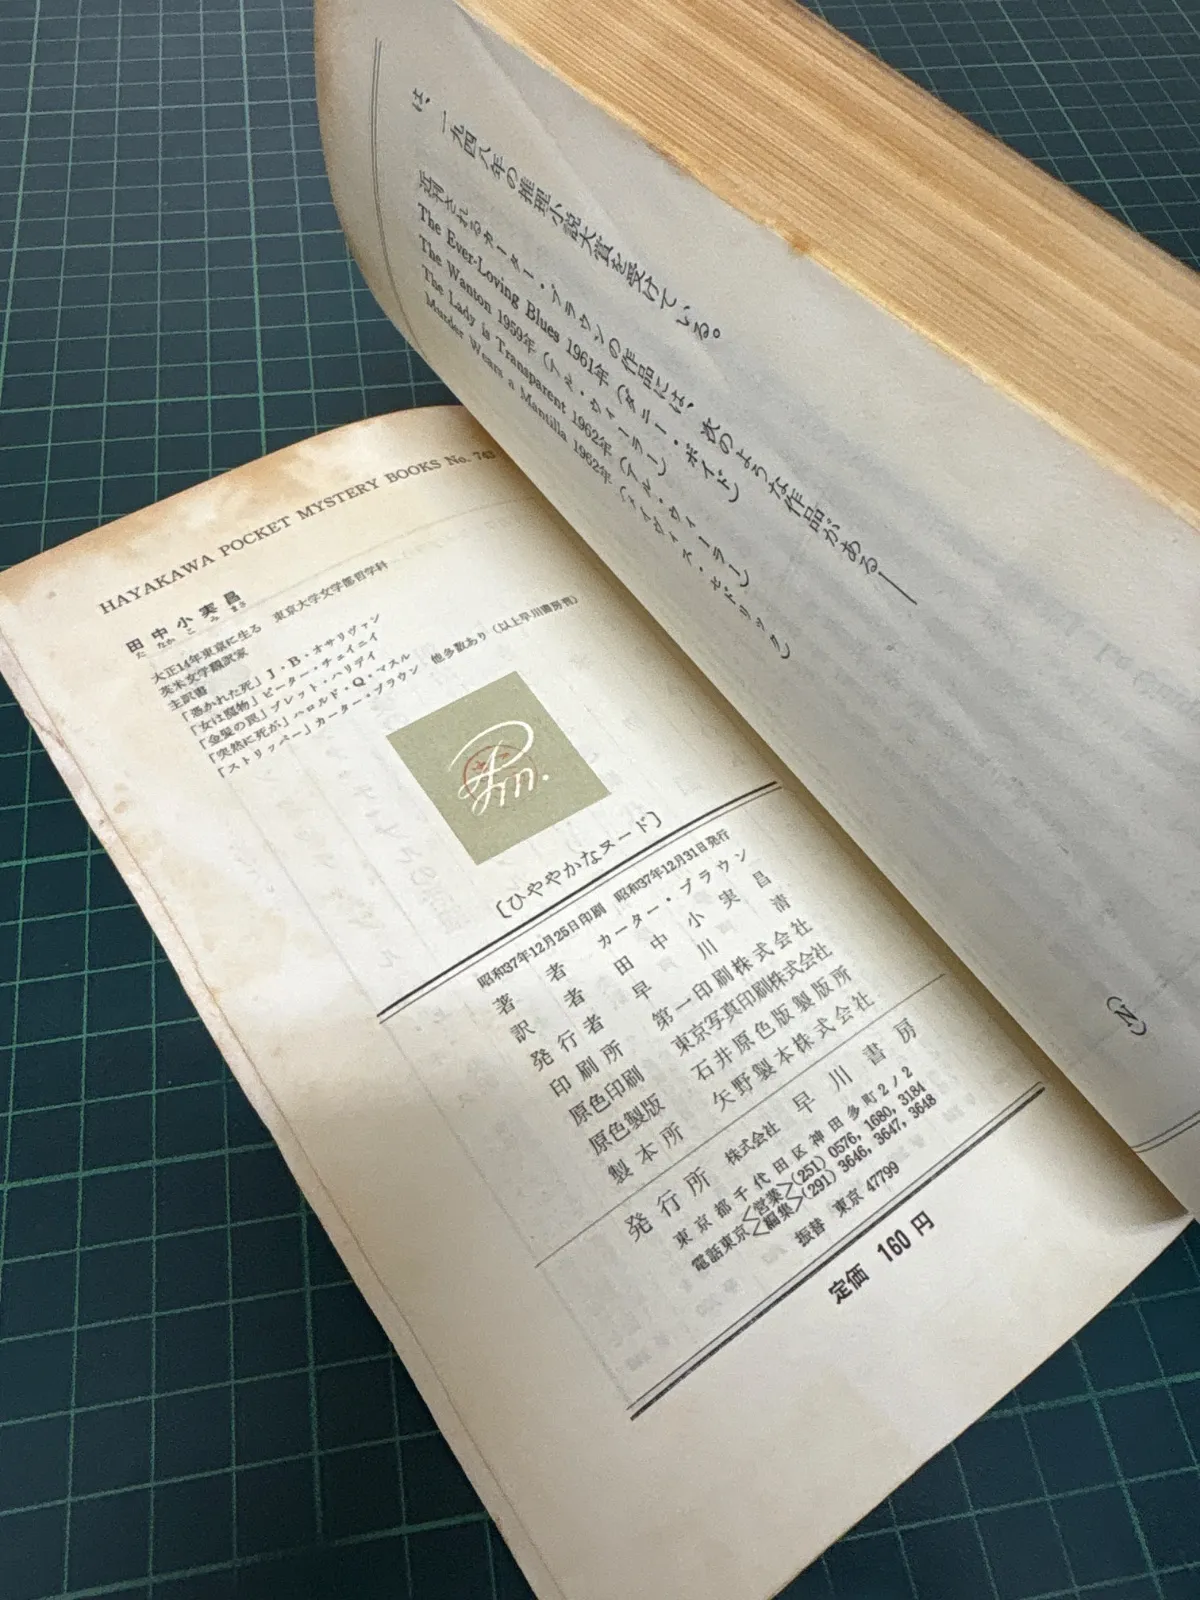 は、一九四八年の推理小説大賞を受けている。
近刊されるカーター・ブラウンの作品には、次のような作品がある——
The Ever-Loving Blues 1961年（ダニー・ボイド）
The Wanton 1959年（アル・ウィーラー）
The Lady is Transparent 1962年（アル・ウィーラー）
Murder Wears a Mantilla 1962年（メイヴィス・セドリッツ）
(N)
HAYAKAWA POCKET MYSTERY BOOKS No. 743
田中小実昌
たなかこみまさ
大正14年東京に生る 東京大学文学部哲学科
英米文学翻訳家
主訳書
「憑かれた死」J・B・オサリヴァン
「女は魔物」ピーター・チェイニイ
「金髪の罠」ブレット・ハリデイ
「突然に死が」ハロルド・Q・マスル
「ストリッパー」カーター・ブラウン 他多数あり（以上早川書房刊）
〔ひややかなヌード〕
昭和37年12月25日印刷 昭和37年12月31日発行
著者 カーター・ブラウン
訳者 田中小実昌
発行者 早川 清
印刷所 第一印刷株式会社
原色印刷 東京写真印刷株式会社
原色製版 石井原色版製版所
製本所 矢野製本株式会社
発行所 株式会社 早川書房
東京都千代田区神田多町2ノ2
電話東京<営業>(251) 0576, 1680, 3184
<編集>(291) 3646, 3647, 3648
振替 東京 47799
定価 160 円